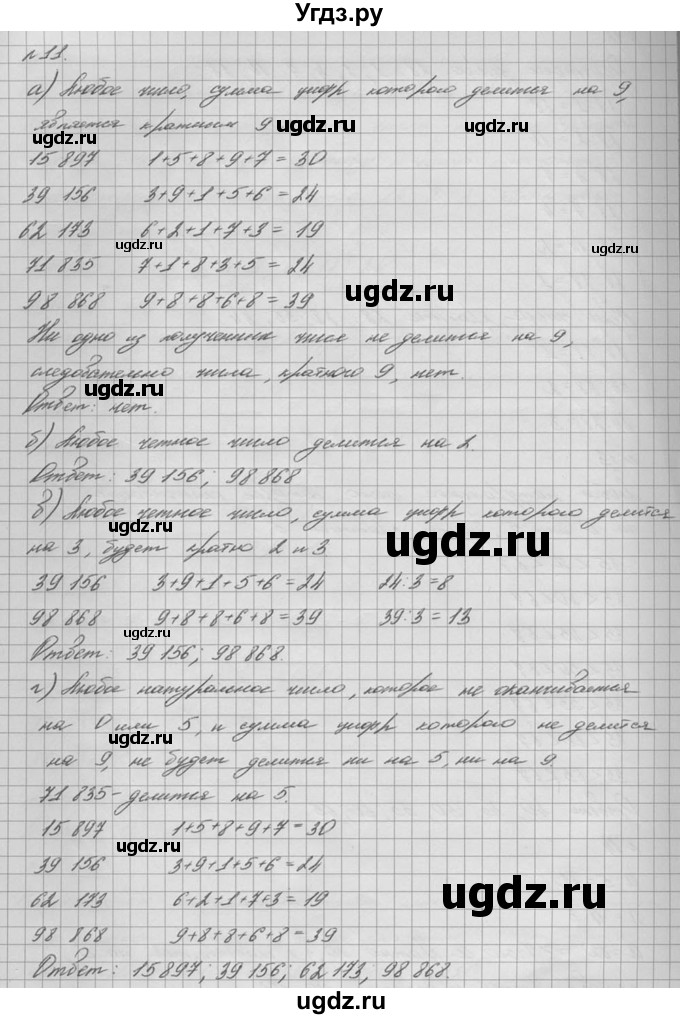 Угдз.ру
№11.
а) Любое число, сумма цифр которого делится на 9,
является кратным 9
ugdz.ru ugdz.ru
15 897 1+5+8+9+7=30
39 156 3+9+1+5+6=24
62 173 6+2+1+7+3= 19
ugdz.ru ugdz.ru
71 835 7+1+8+3+5=24
98 868 9+8+8+6+8=39
ugdz.ru
Ни одно из полученных чисел не делится на 9,
следовательно числа, кратного 9, нет.
ugdz.ru
Ответ: нет.
б) Любое четное число делится на 2.
ugdz.ru
Ответ: 39 156; 98 868
в) Любое четное число, сумма цифр которого делится
ugdz.ru
на 3, будет кратно 2 и 3
ugdz.ru
39 156 3+9+1+5+6=24 24:3=8
98 868 9+8+8+6+8=39 39:3=13
ugdz.ru
Ответ: 39 156; 98 868.
г) Любое натуральное число, которое не оканчивается
на 0 или 5, и сумма цифр которого не делится
ugdz.ru
на 9, не будет делится ни на 5, ни на 9.
71 835 - делится на 5.
15 897 1+5+8+9+7=30
39 156 3+9+1+5+6=24
62 173 6+2+1+7+3=19
ugdz.ru
98 868 9+8+8+6+8=39
ugdz.ru
Ответ: 15 897; 39 156; 62 173, 98 868.
ugdz.ru